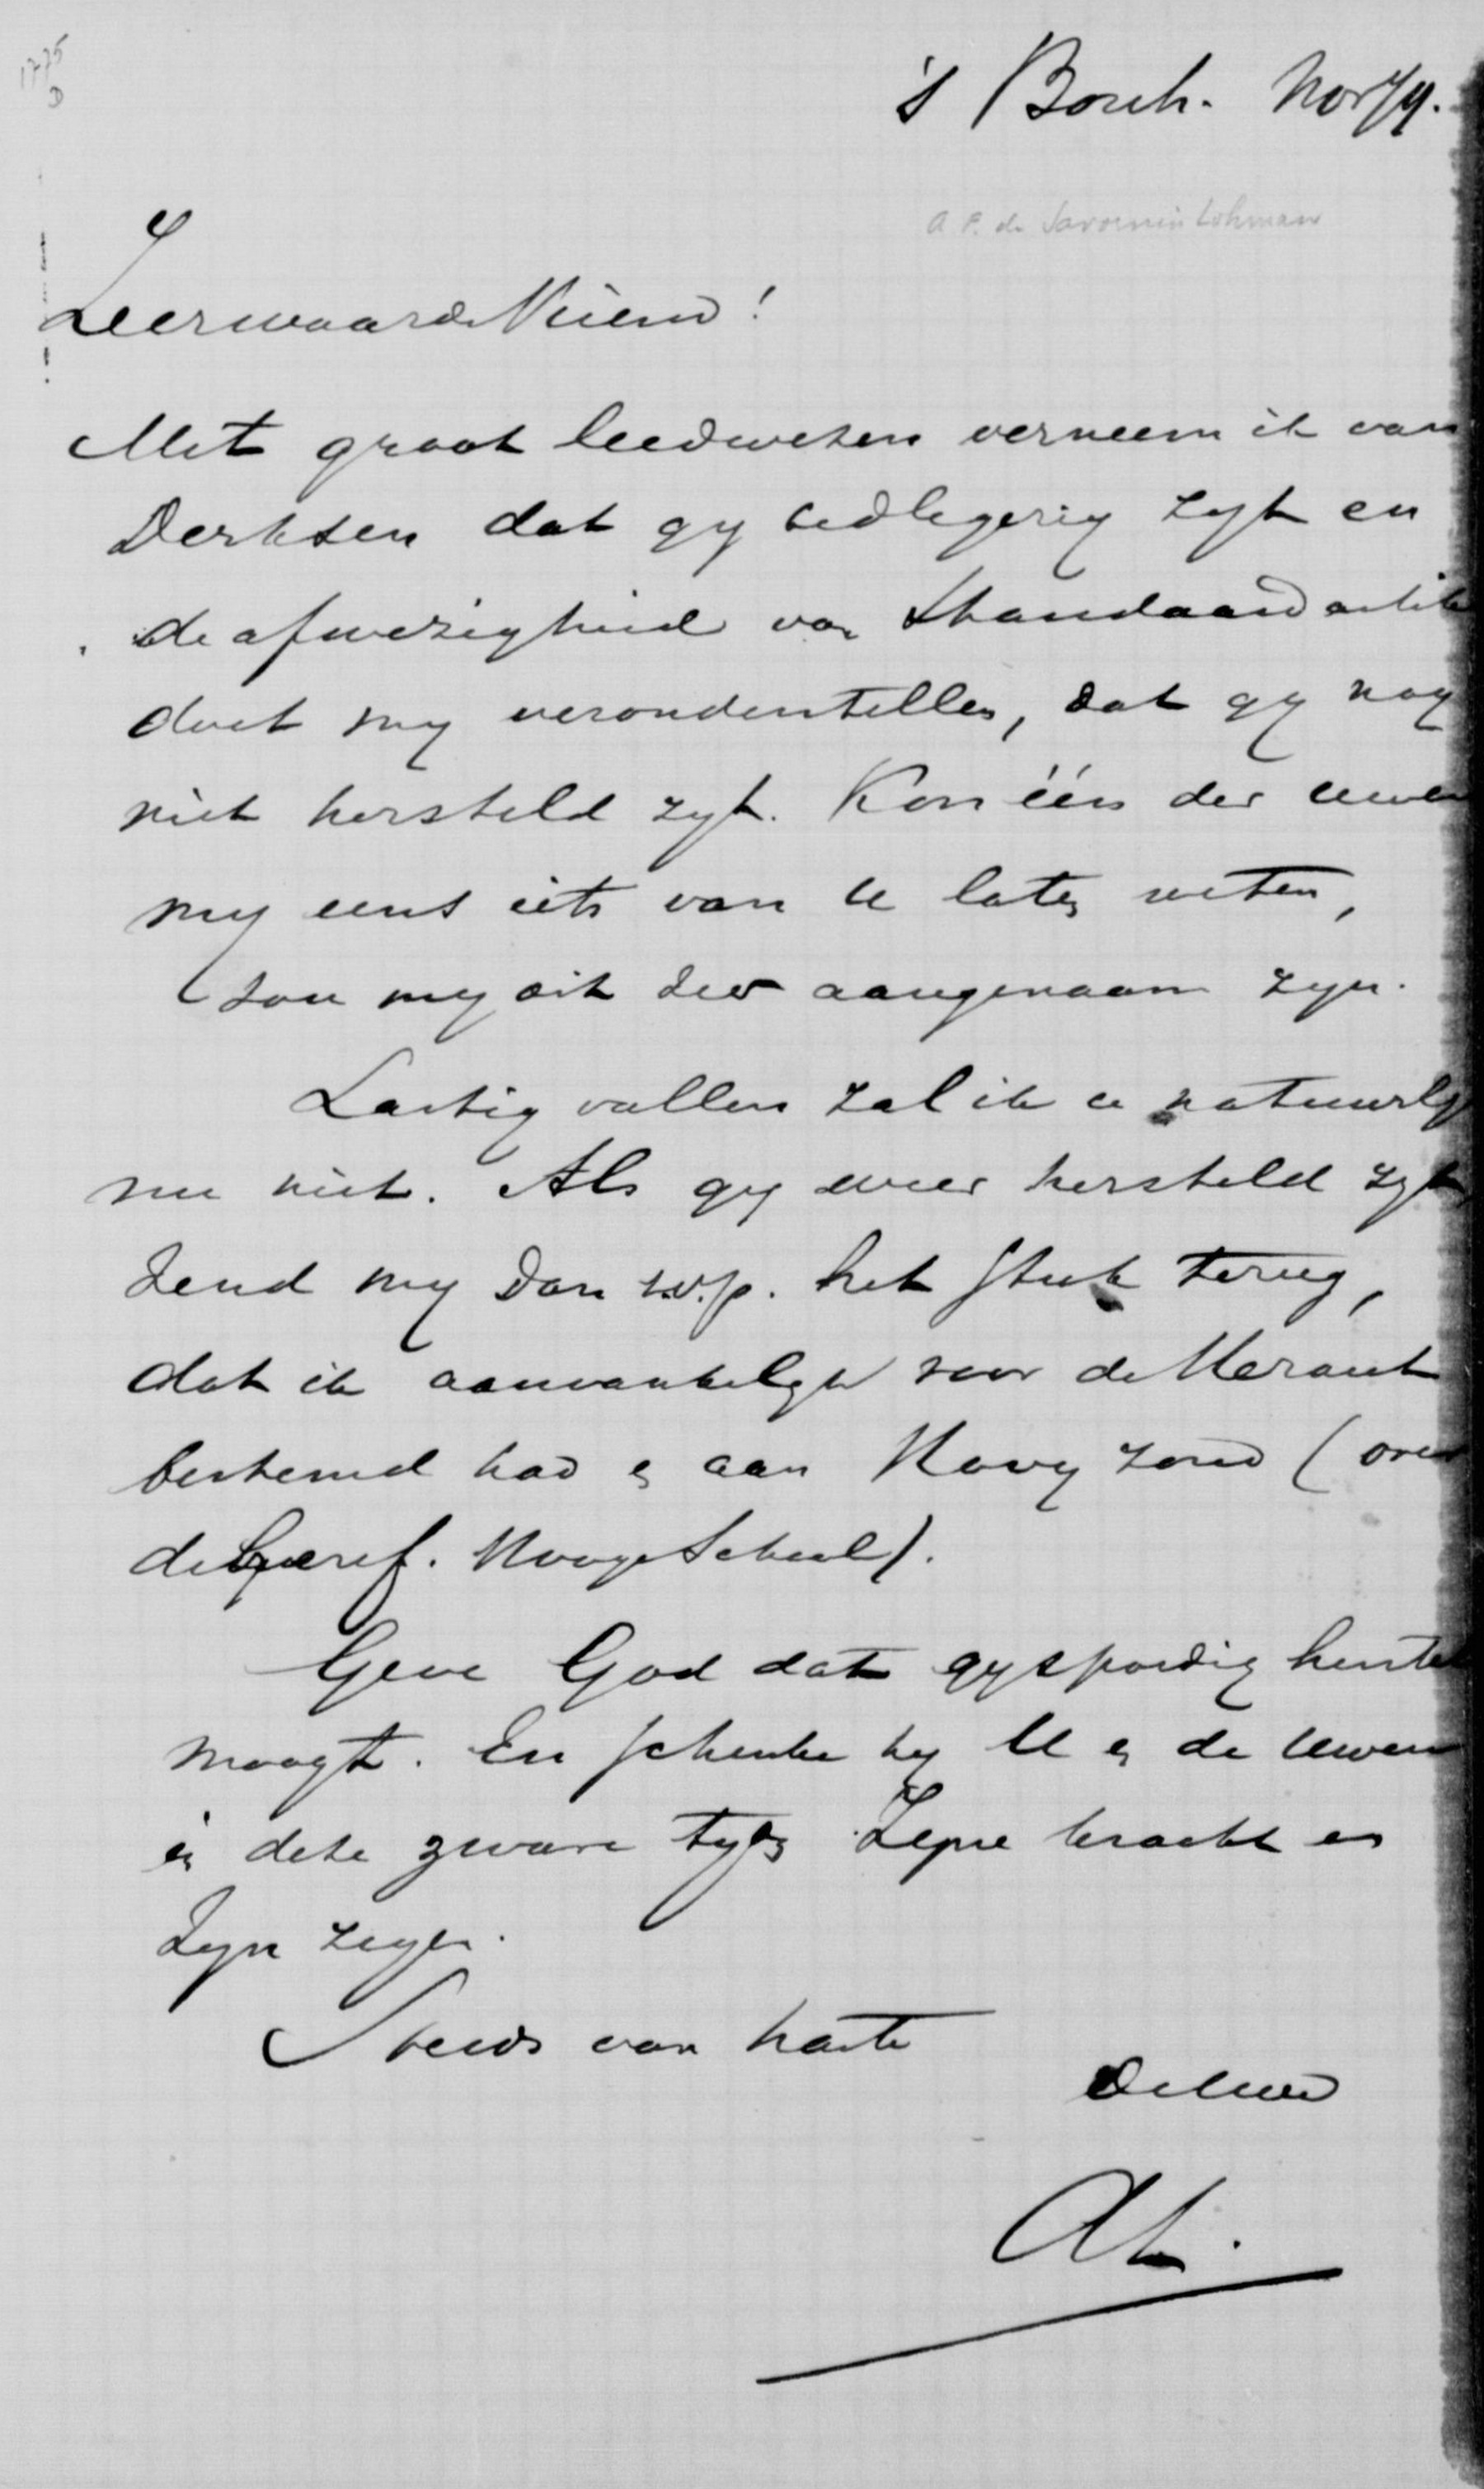 1775
D
's Bosch. Nov 79.
A. F. de Savornin Lohman
Zeerwaarde Vriend!
Met groot leedwezen verneem ik van
Derksen dat gy bedlegerig zyt en
de afwezigheid van Standaard artik
doet my veronderstellen, dat gy nog
niet hersteld zyt. Kon één der uwen
my eens iets van U laten weten,
zou my dit zeer aangenaam zyn.
Lastig vallen zal ik U natuurlyk
nu niet. Als gy weer hersteld zyt
zend my dan s.v.p. het stuk terug,
dat ik aanvankelyk voor de Heraut
bestemd had en aan Hovy zond (over
de Geref. Hooge School).
Geve God dat gy spoedig herstel
moogt. En schenke hy U en de Uwen
in deze zware tyden Zyne kracht en
Zyn zegen.
Steeds van harte
de Uwe
AL.